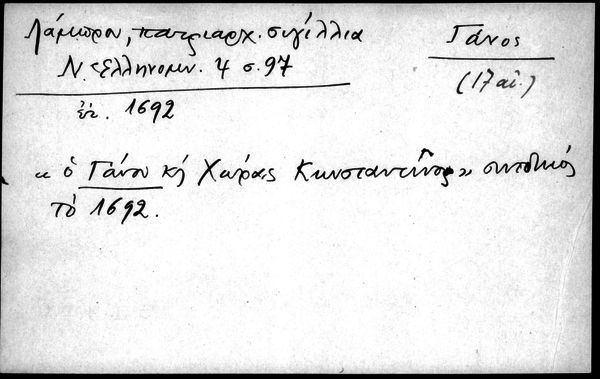 Λάμπρου, πατριαρχ. σιγίλλια
Ν. Ἑλληνομν. 4 σ. 97
ἔτ. 1692
Γάνος
(17 αἰ.)
« ὁ Γάνου κỳ Χώρας Κωνσταντῖνος » συνοδικός
τὸ 1692.